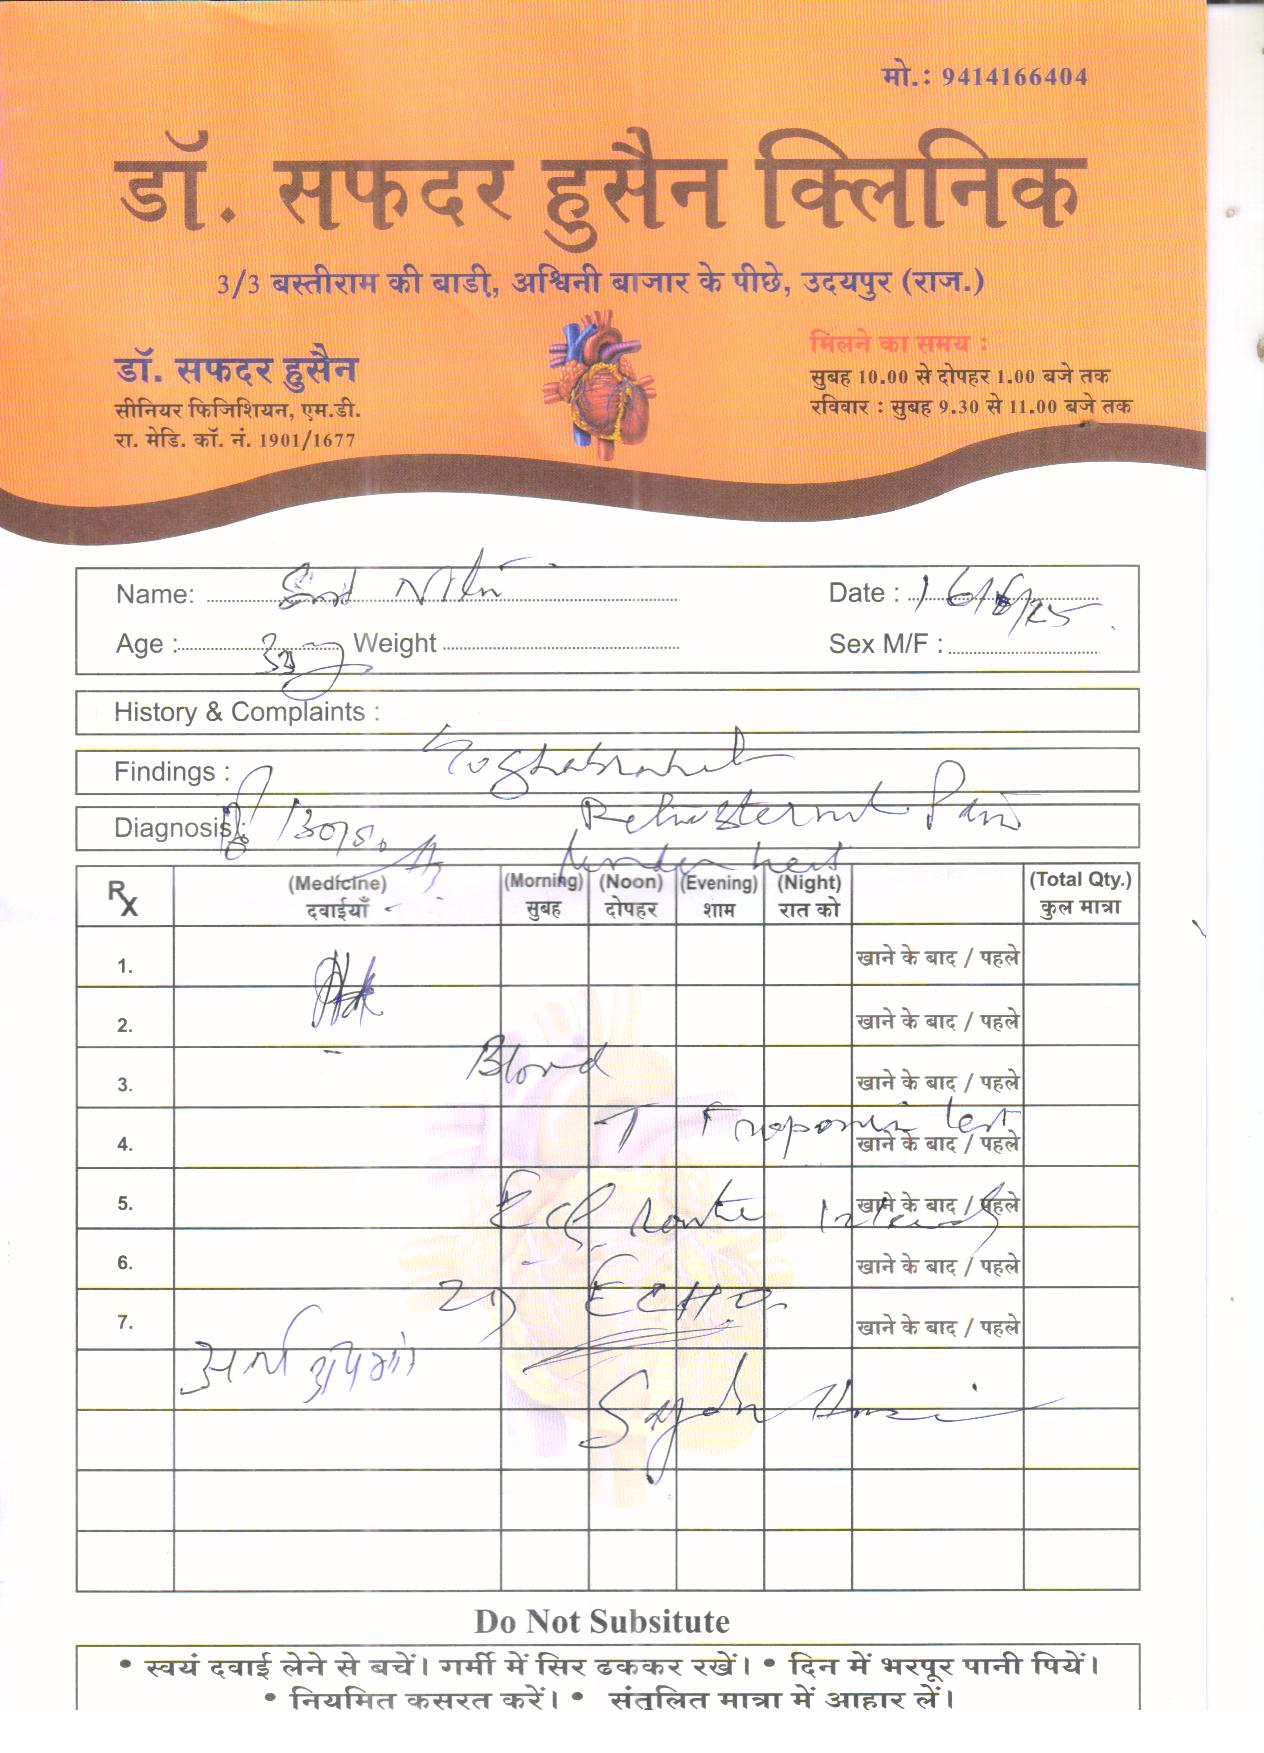 मो.: 9414166404
डॉ. सफदर हुसैन क्लिनिक
3/3 बस्तीराम की बाडी, अश्विनी बाजार के पीछे, उदयपुर (राज.)
डॉ. सफदर हुसैन
सीनियर फिजिशियन, एम.डी.
रा. मेडि. कॉ. नं. 1901/1677
मिलने का समय :
सुबह 10.00 से दोपहर 1.00 बजे तक
रविवार : सुबह 9.30 से 11.00 बजे तक
Name: Date :
Age : Weight Sex M/F :
History & Complaints :
Findings : Ghabrahat
Diagnosis: Retrosternal Pain
Rx (Medicine) (Morning) (Noon) (Evening) (Night) (Total Qty.)
दवाईयाँ सुबह दोपहर शाम रात को कुल मात्रा
1. खाने के बाद / पहले
2. खाने के बाद / पहले
3. Blood खाने के बाद / पहले
4. T Troponin test खाने के बाद / पहले
5. ECG खाने के बाद / पहले
6. खाने के बाद / पहले
7. ECHO खाने के बाद / पहले
Do Not Subsitute
• स्वयं दवाई लेने से बचें। गर्मी में सिर ढककर रखें। • दिन में भरपूर पानी पियें।
• नियमित कसरत करें। • संतुलित मात्रा में आहार लें।